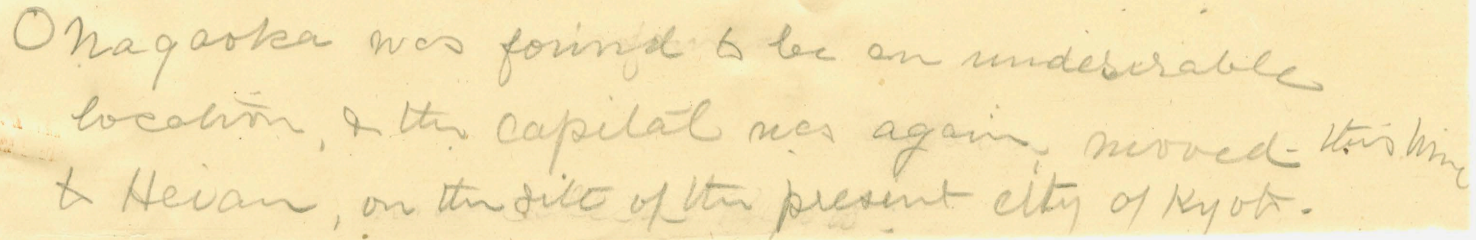 O Nagaoka was found to be an undesirable
location, & the capital was again, moved - this time
to Heian, on the site of the present city of Kyoto.